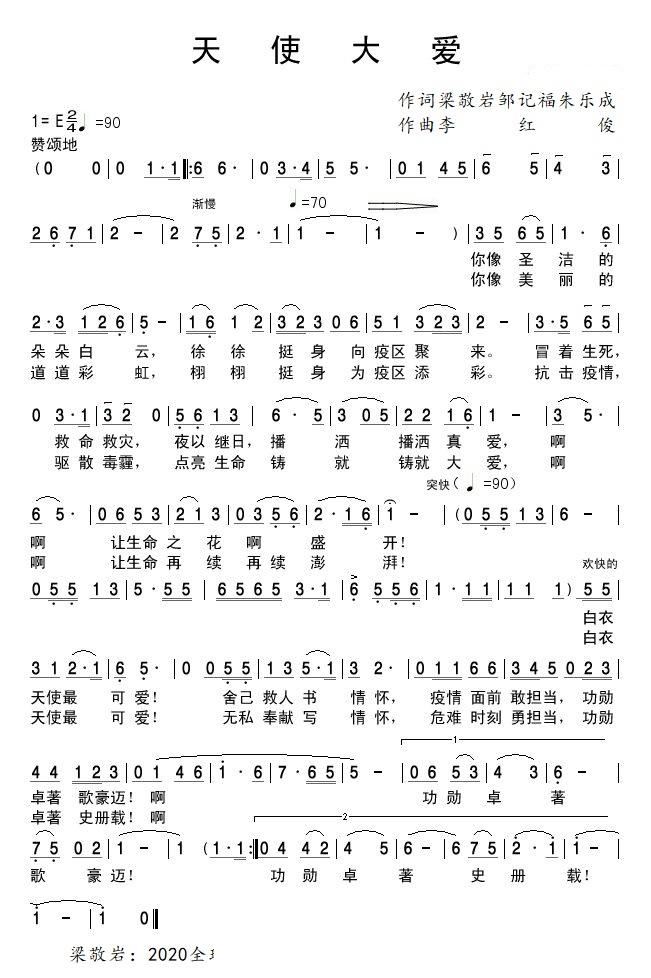 天使大爱
作词梁敬岩邹记福朱乐成
作曲李红俊
1=E 2/4 ♩=90
赞颂地
(0 0|0 1·1|:6 6·|0 3·4|5 5·|0 4 5|6 5|4 3|
渐慢 ♩=70
2 6 7 1|2 -|2 7 5|2· 1|1 -|1 -)|3 5 6 5|1· 6|
你像圣洁的
你像美丽的
2·3 1 2 6|5 -|1 6 1 2|3 2 3 0 6|5 1 3 2 3|2 -|3·5 6 5|
朵朵白云,徐徐挺身向疫区聚来。冒着生死,
道道彩虹,栩栩挺身为疫区添彩。抗击疫情,
0 3·1|3 2 0|5 6 1 3|6· 5|3 0 5|2 2 1 6|1 -|3 5·|
救命救灾,夜以继日,播洒播洒真爱,啊
驱散毒霾,点亮生命铸就铸就大爱,啊
突快(♩=90)
6 5·|0 6 5 3|2 1 3|0 3 5 6|2·1 6|1 -|(0 5 5 1 3|6 -|
啊让生命之花啊盛开!
啊让生命再续再续澎湃!
欢快的
0 5 5 1 3|5·5 5|6 5 6 5 3·1|6 5 5 6|1·1 1 1|1 1 1)|5 5|
白衣
白衣
3 1 2·1|6 5·|0 0 5 5|1 3 5·1|3 2·|0 1 1 6 6|3 4 5 0 2 3|
天使最可爱!舍己救人书情怀,疫情面前敢担当,功勋
天使最可爱!无私奉献写情怀,危难时刻勇担当,功勋
1
4 4 1 2 3|0 1 4 6|1· 6|7·6 5|5 -|0 6 5 3|4 3|6 -|
卓著歌豪迈!啊功勋卓著
卓著史册载!啊
2
7 5 0 2|1 -|1 (1·1:|0 4 4 2|4 5|6 -|6 7 5|2· 1|1 -|
歌豪迈!功勋卓著史册载!
1 -|1 0‖
梁敬岩:2020全